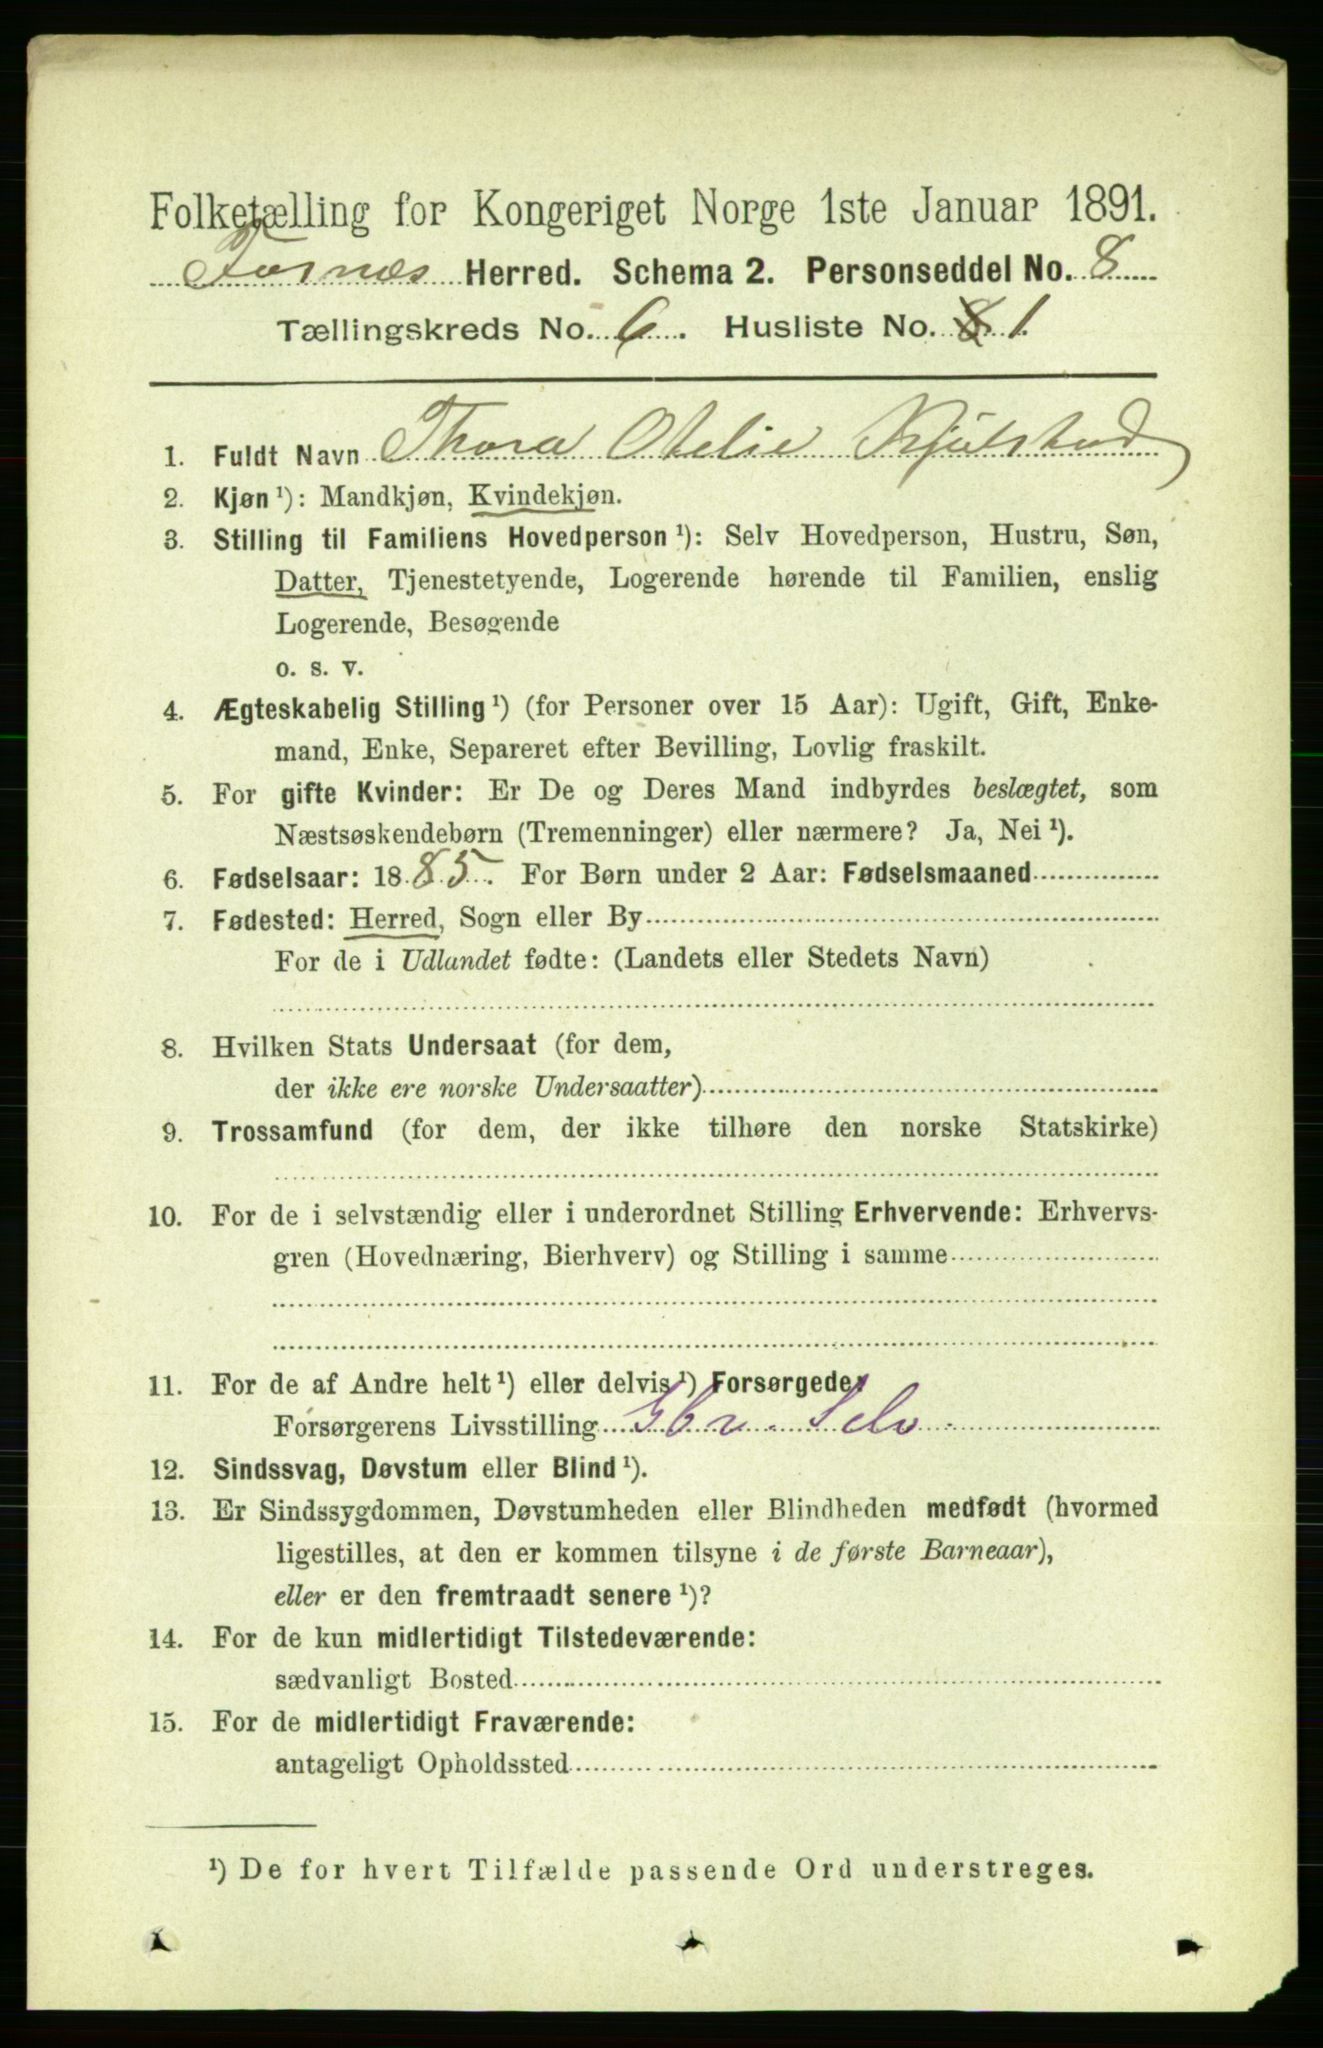 Folketælling for Kongeriget Norge 1ste Januar 1891.
Fosnæs Herred. Schema 2. Personseddel No. 8
Tællingskreds No. 6. Husliste No. 8 1.
1. Fuldt Navn Thora Otelie Kjølstad
2. Kjøn ¹): Mandkjøn, Kvindekjøn.
3. Stilling til Familiens Hovedperson ¹): Selv Hovedperson, Hustru, Søn,
Datter, Tjenestetyende, Logerende hørende til Familien, enslig
Logerende, Besøgende
o. s. v.
4. Ægteskabelig Stilling ¹) (for Personer over 15 Aar): Ugift, Gift, Enke-
mand, Enke, Separeret efter Bevilling, Lovlig fraskilt.
5. For gifte Kvinder: Er De og Deres Mand indbyrdes beslægtet, som
Næstsøskendebørn (Tremenninger) eller nærmere? Ja, Nei ¹).
6. Fødselsaar: 1885. For Børn under 2 Aar: Fødselsmaaned
7. Fødested: Herred, Sogn eller By
For de i Udlandet fødte: (Landets eller Stedets Navn)
8. Hvilken Stats Undersaat (for dem,
der ikke ere norske Undersaatter)
9. Trossamfund (for dem, der ikke tilhøre den norske Statskirke)
10. For de i selvstændig eller i underordnet Stilling Erhvervende: Erhvervs-
gren (Hovednæring, Bierhverv) og Stilling i samme
11. For de af Andre helt ¹) eller delvis ¹) Forsørgede:
Forsørgerens Livsstilling Gbr. Selv
12. Sindssvag, Døvstum eller Blind ¹).
13. Er Sindssygdommen, Døvstumheden eller Blindheden medfødt (hvormed
ligestilles, at den er kommen tilsyne i de første Barneaar),
eller er den fremtraadt senere ¹)?
14. For de kun midlertidigt Tilstedeværende:
sædvanligt Bosted
15. For de midlertidigt Fraværende:
antageligt Opholdssted
¹) De for hvert Tilfælde passende Ord understreges.